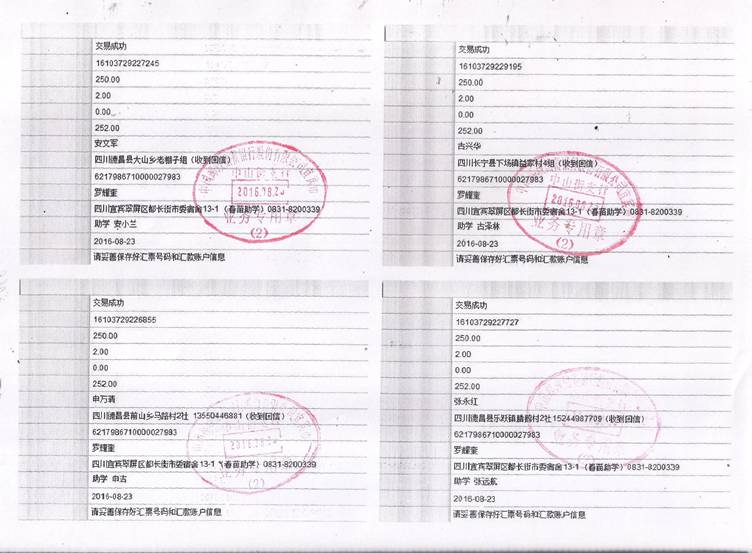 交易成功
16103729227245
250.00
2.00
0.00
252.00
安文军
四川德昌县大山乡老棚子组（收到回信）
6217986710000027983
罗耀奎
四川宜宾翠屏区都长街市委宿舍13-1（春苗助学）0831-8200339
助学 安小兰
2016-08-23
请妥善保存好汇票号码和汇款账户信息
中山街支行
2016.08.23
业务专用章
(2)
交易成功
16103729229195
250.00
2.00
0.00
252.00
古兴华
四川长宁县下场镇益家村4组（收到回信）
6217986710000027983
罗耀奎
四川宜宾翠屏区都长街市委宿舍13-1（春苗助学）0831-8200339
助学 古泽林
2016-08-23
请妥善保存好汇票号码和汇款账户信息
中山街支行
2016.08.23
业务专用章
(2)
交易成功
16103729226855
250.00
2.00
0.00
252.00
申万清
四川德昌县前山乡马路村2社 13550446881（收到回信）
6217986710000027983
罗耀奎
四川宜宾翠屏区都长街市委宿舍13-1（春苗助学）0831-8200339
助学 申古
2016-08-23
请妥善保存好汇票号码和汇款账户信息
(2)
交易成功
16103729227727
250.00
2.00
0.00
252.00
张永红
四川德昌县乐跃镇 村2社15244987709（收到回信）
6217986710000027983
罗耀奎
四川宜宾翠屏区都长街市委宿舍13-1（春苗助学）0831-8200339
助学 张远航
2016-08-23
请妥善保存好汇票号码和汇款账户信息
(2)